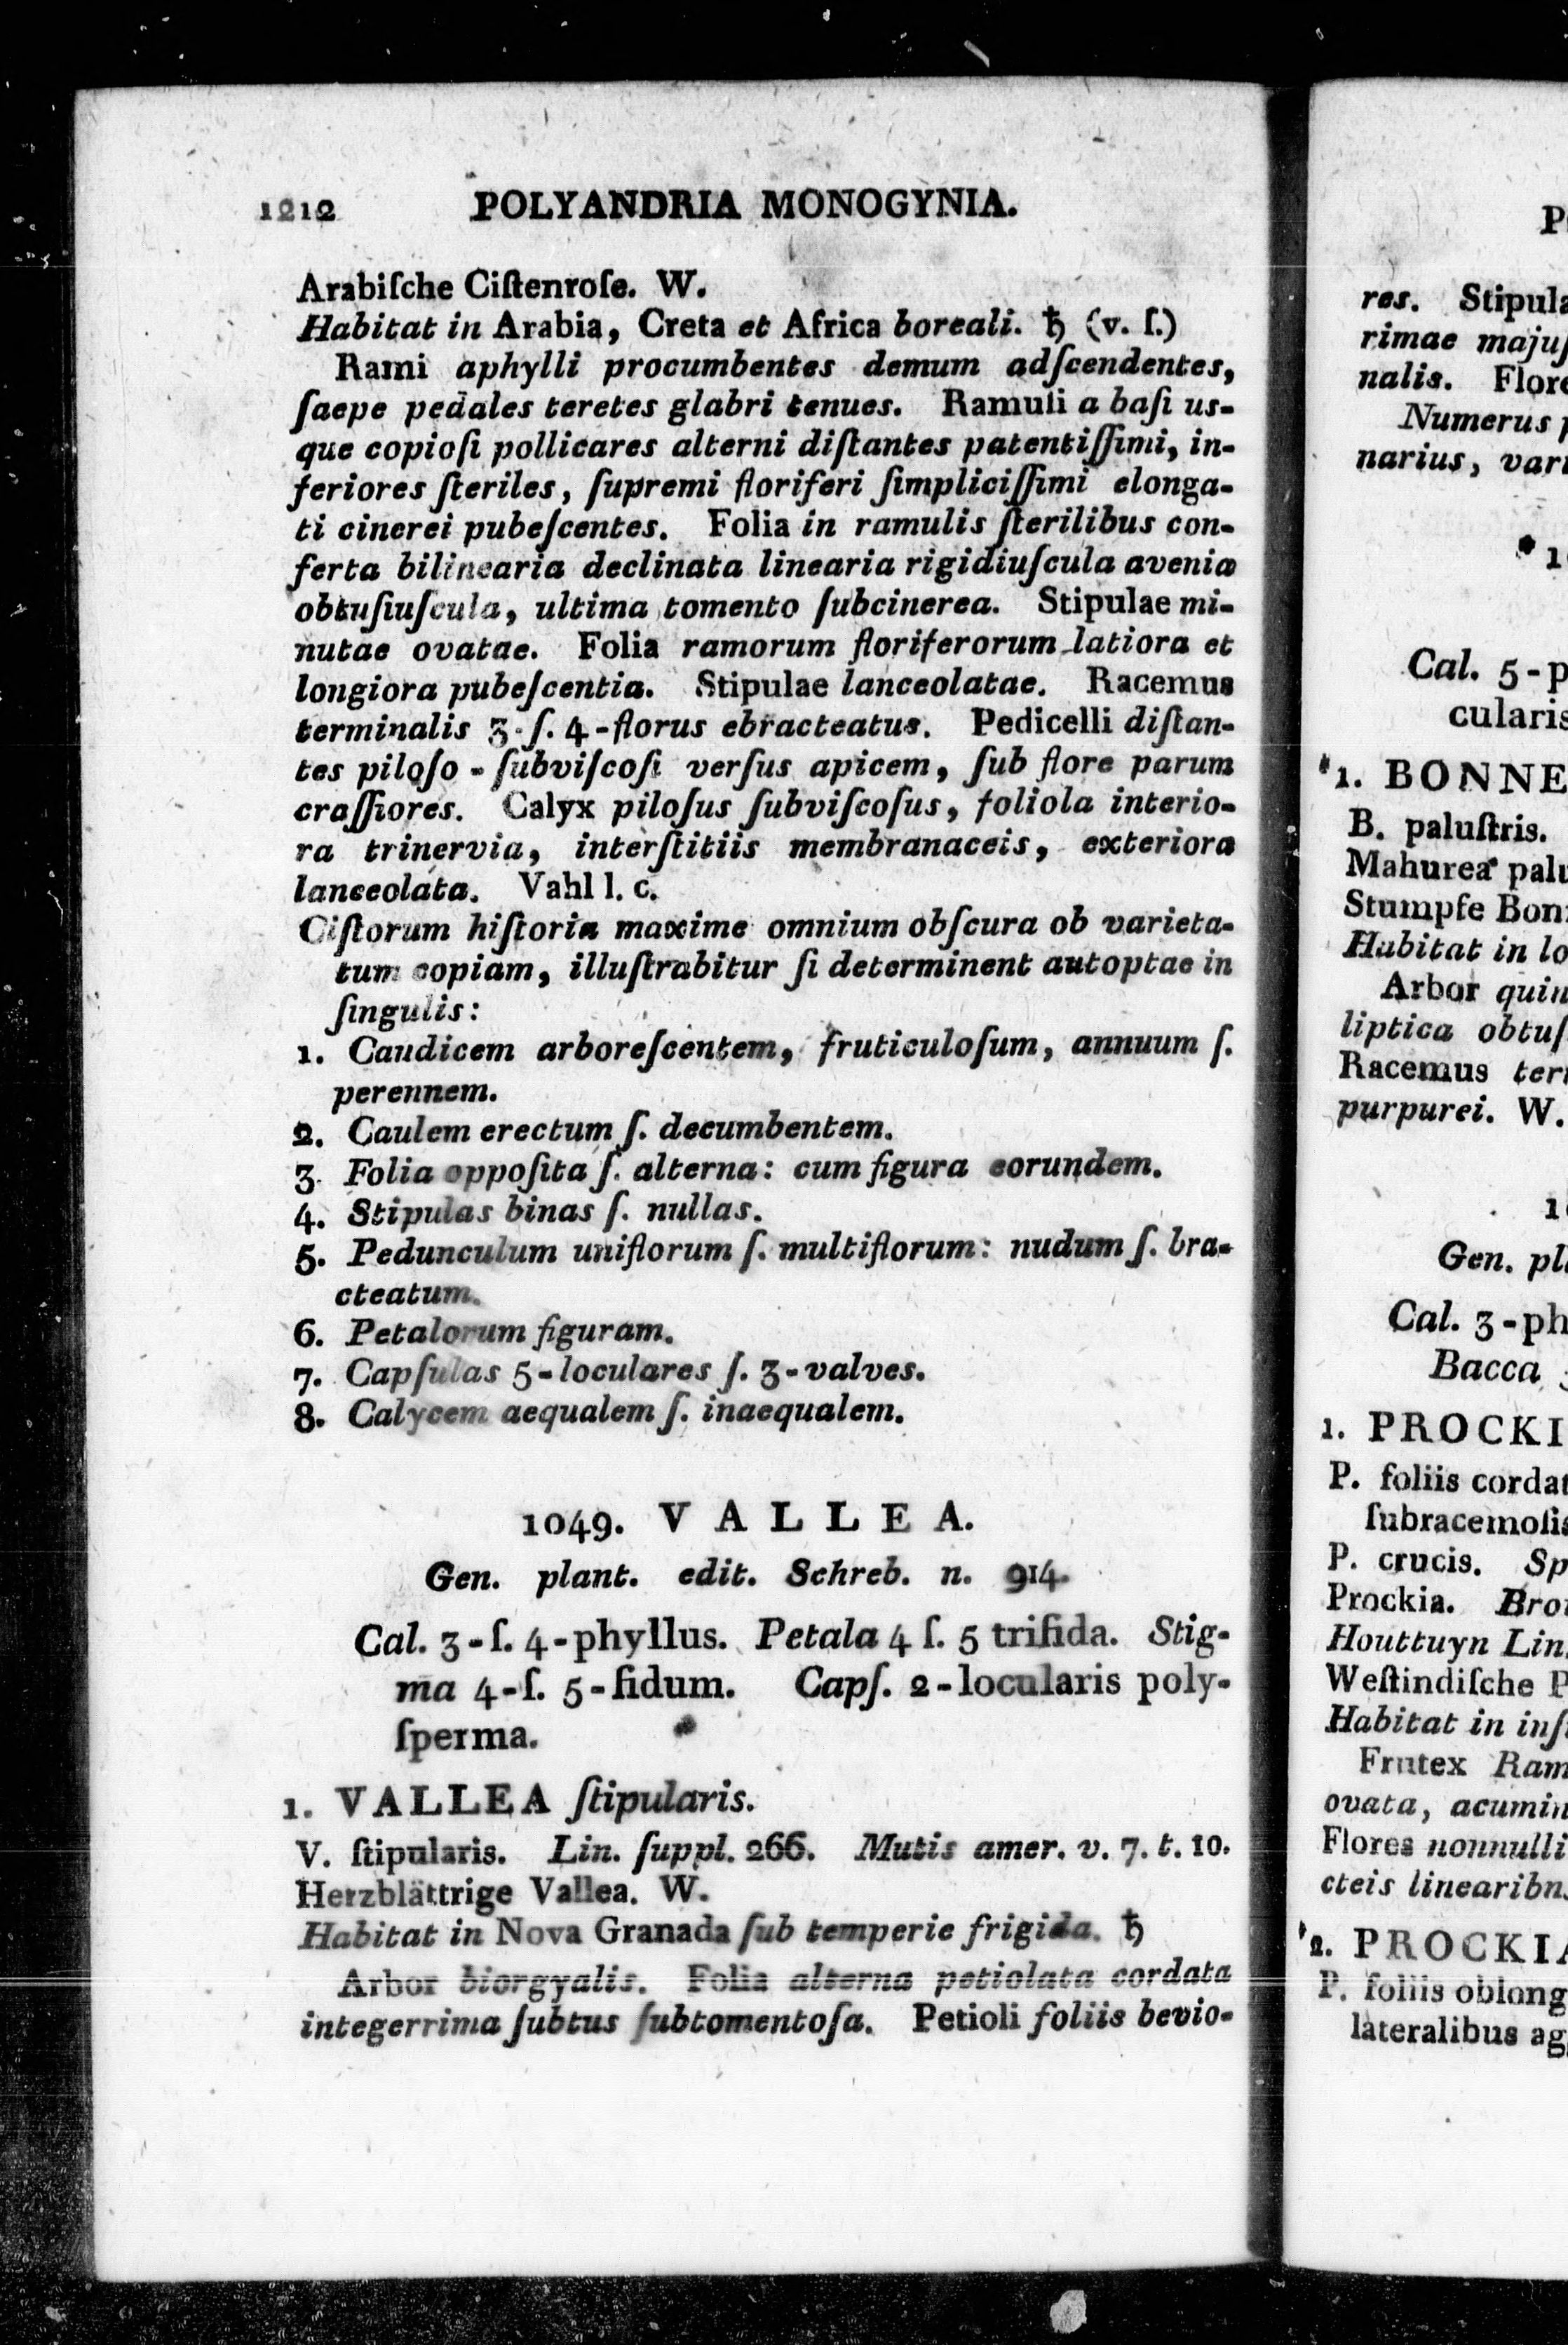 1212 POLYANDRIA MONOGYNIA.
Arabiſche Ciſtenroſe. W.
Habitat in Arabia, Creta et Africa boreali. ♄ (v. ſ.)
Rami aphylli procumbentes demum adſcendentes,
ſaepe pedales teretes glabri tenues. Ramuli a baſi us-
que copioſi pollicares alterni diſtantes patentiſſimi, in-
feriores ſteriles, ſupremi floriferi ſimpliciſſimi elonga-
ti cinerei pubeſcentes. Folia in ramulis ſterilibus con-
ferta bilinearia declinata linearia rigidiuſcula avenia
obtuſiuſcula, ultima tomento ſubcinerea. Stipulae mi-
nutae ovatae. Folia ramorum floriferorum latiora et
longiora pubeſcentia. Stipulae lanceolatae. Racemus
terminalis 3-ſ. 4-florus ebracteatus. Pedicelli diſtan-
tes piloſo-ſubviſcoſi verſus apicem, ſub flore parum
craſſiores. Calyx piloſus ſubviſcoſus, foliola interio-
ra trinervia, interſtitiis membranaceis, exteriora
lanceolata. Vahl l. c.
Ciſtorum hiſtoria maxime omnium obſcura ob varieta-
tum copiam, illuſtrabitur ſi determinent autoptae in
ſingulis:
1. Caudicem arboreſcentem, fruticuloſum, annuum ſ.
perennem.
2. Caulem erectum ſ. decumbentem.
3. Folia oppoſita ſ. alterna: cum figura eorundem.
4. Stipulas binas ſ. nullas.
5. Pedunculum uniflorum ſ. multiflorum: nudum ſ. bra-
cteatum.
6. Petalorum figuram.
7. Capſulas 5-loculares ſ. 3-valves.
8. Calycem aequalem ſ. inaequalem.
1049. VALLEA.
Gen. plant. edit. Schreb. n. 914.
Cal. 3-ſ. 4-phyllus. Petala 4 ſ. 5 trifida. Stig-
ma 4-ſ. 5-fidum. Capſ. 2-locularis poly-
ſperma.
1. VALLEA ſtipularis.
V. ſtipularis. Lin. ſuppl. 266. Mutis amer. v. 7. t. 10.
Herzblättrige Vallea. W.
Habitat in Nova Granada ſub temperie frigida. ♄
Arbor biorgyalis. Folia alterna petiolata cordata
integerrima ſubtus ſubtomentoſa. Petioli foliis bevio-
res. Stipula
rimae
nalis.
Numerus
narius,
Cal. 5-p
cularis
*1. BONNE
B. paluſtris.
Mahurea
Stumpfe
Habitat in lo
Arbor
liptica
Racemus
purpurei. W.
Gen.
Cal. 3-ph
Bacca
1. PROCKI
P. foliis
P. crucis.
Prockia.
Houttuyn Lin.
Weſtindiſche P
Habitat in
Frutex
ovata,
Flores nonnulli
cteis
*2. PROCKIA
P. foliis
lateralibus